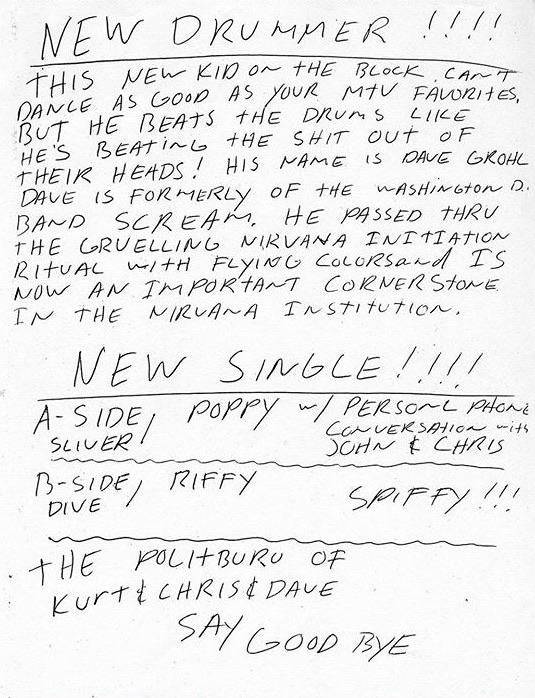 NEW DRUMMER !!!!
THIS NEW KID ON THE BLOCK CAN'T
DANCE AS GOOD AS YOUR MTV FAVORITES.
BUT HE BEATS THE DRUMS LIKE
HE'S BEATING THE SHIT OUT OF
THEIR HEADS! HIS NAME IS DAVE GROHL
DAVE IS FORMERLY OF THE WASHINGTON D.
BAND SCREAM. HE PASSED THRU
THE GRUELLING NIRVANA INITIATION
RITUAL WITH FLYING COLORS and IS
NOW AN IMPORTANT CORNERSTONE
IN THE NIRVANA INSTITUTION.
NEW SINGLE!!!!
A-SIDE, POPPY w/ PERSONAL PHONE
SLIVER! CONVERSATION with
JOHN & CHRIS
B-SIDE, RIFFY
DIVE SPIFFY!!!
THE POLITBURO OF
Kurt & CHRIS & DAVE
SAY GOOD BYE